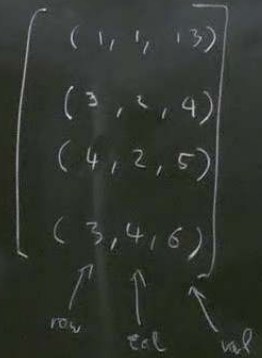 (1, 1, 13)
(3, 2, 4)
(4, 2, 5)
(3, 4, 6)
row col val